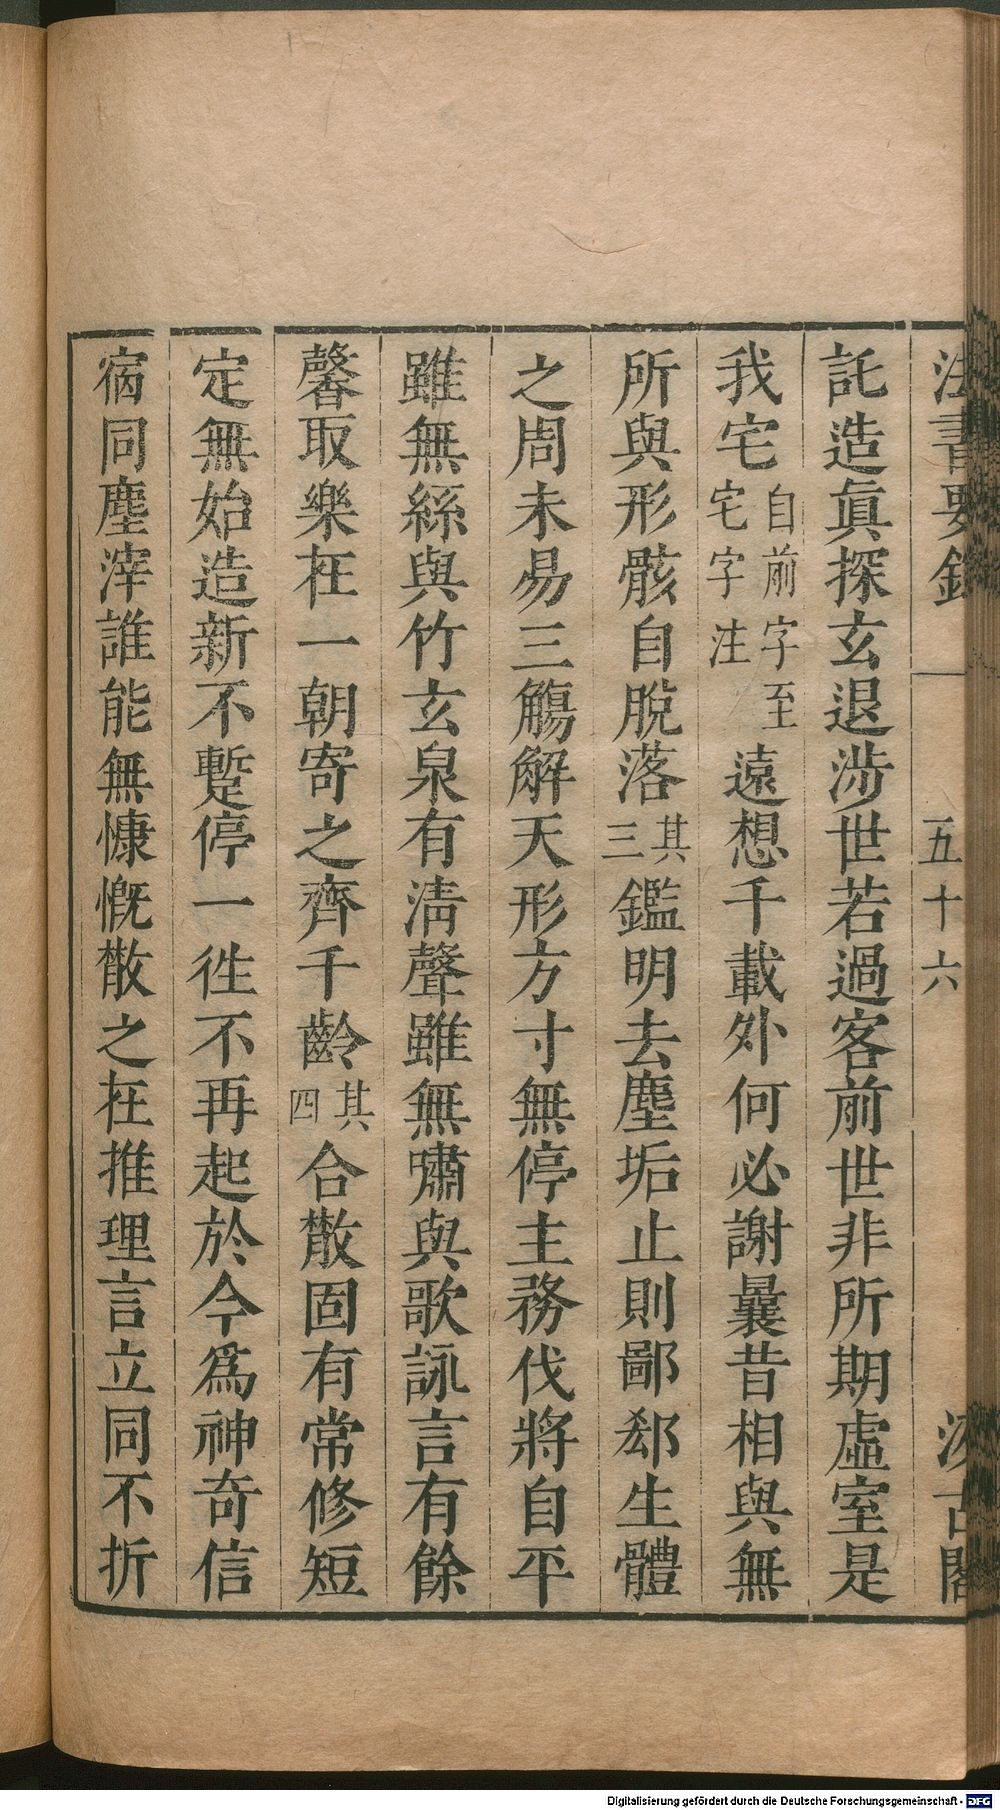 法書要錄 五十六 汲古閣
託造眞探玄退涉世若過客前世非所期虛室是
我宅自前字至宅字注遠想千載外何必謝曩昔相與無
所與形骸自脫落其三鑑明去塵垢止則鄙郄生體
之周未易三觴解天形方寸無停主務伐將自平
雖無絲與竹玄泉有淸聲雖無嘯與歌詠言有餘
馨取樂在一朝寄之齊千齡其四合散固有常修短
定無始造新不蹔停一徃不再起於今爲神奇信
宿同塵滓誰能無慷慨散之在推理言立同不折
Digitalisierung gefördert durch die Deutsche Forschungsgemeinschaft - DFG